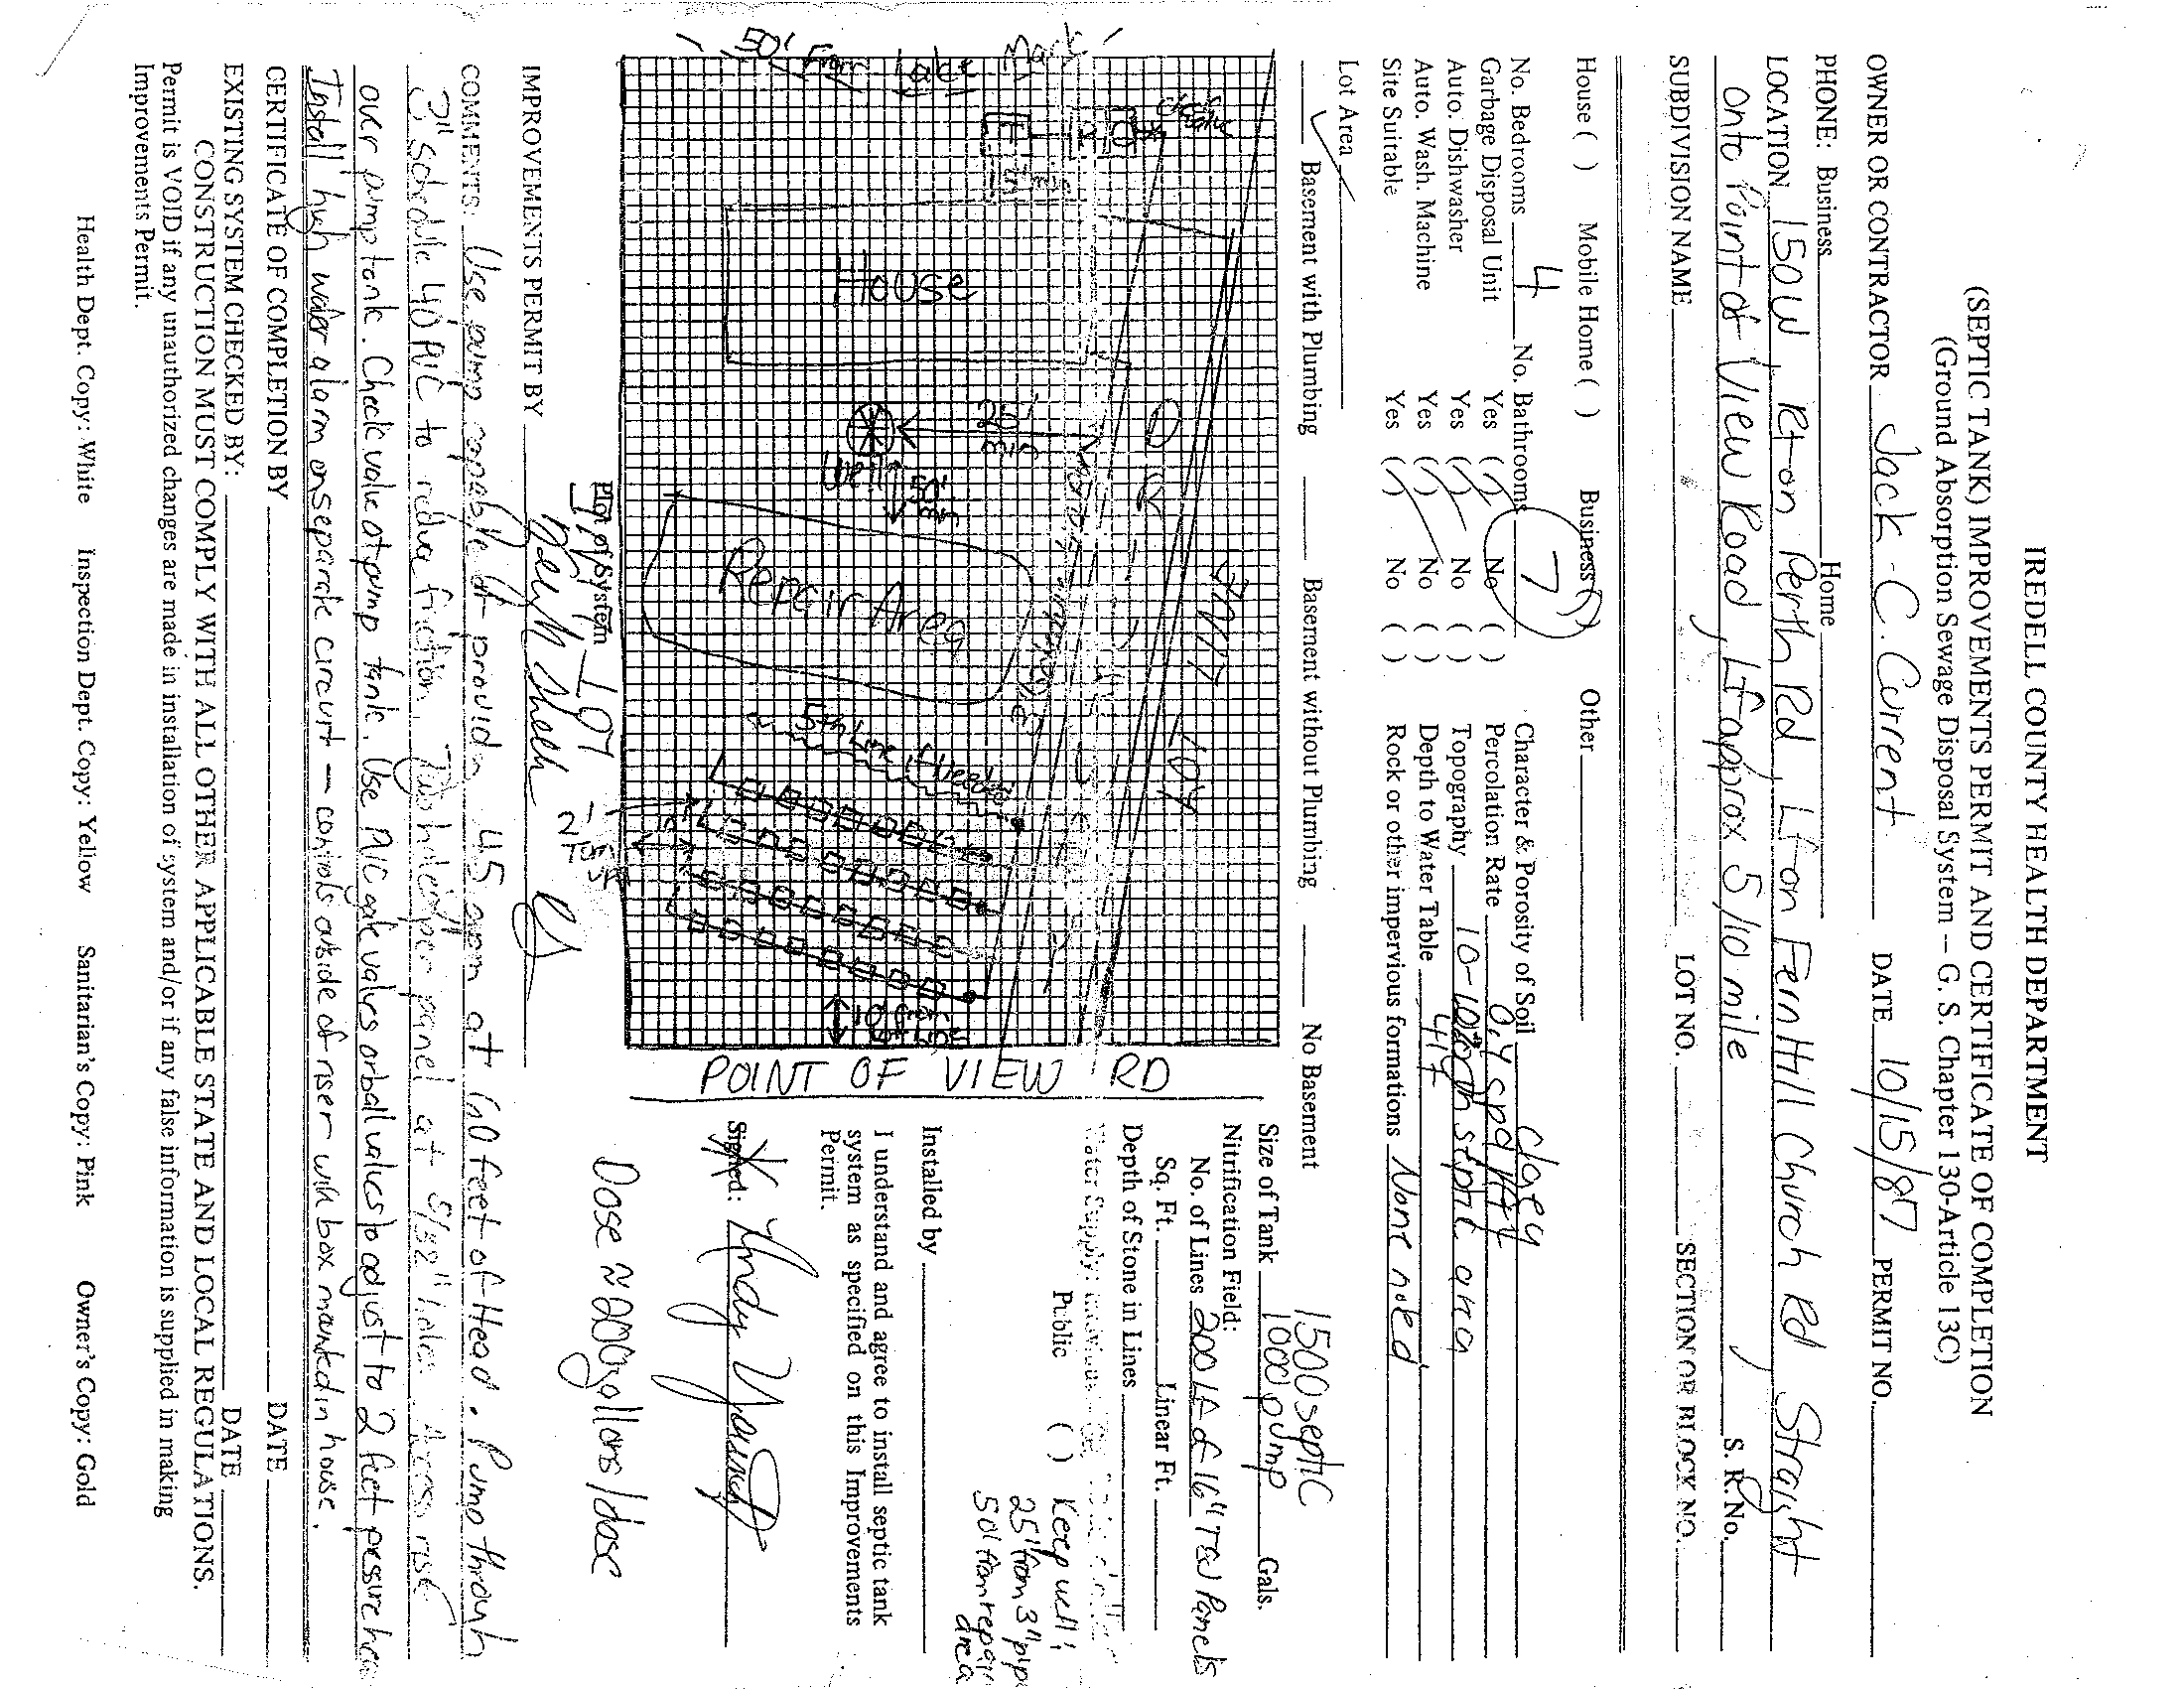 IREDELL COUNTY HEALTH DEPARTMENT
(SEPTIC TANK) IMPROVEMENTS PERMIT AND CERTIFICATE OF COMPLETION
(Ground Absorption Sewage Disposal System -- G. S. Chapter 130-Article 13C)
OWNER OR CONTRACTOR Jack C. Current DATE 10/15/87 PERMIT NO.
PHONE: Business Home
LOCATION 150W, Rt on Perth Rd, Lt on Fern Hill Church Rd Straight
onto Point of View Road, Lt approx 5/10 mile S. R. No.
SUBDIVISION NAME LOT NO. SECTION OR BLOCK NO.
House ( ) Mobile Home ( ) Business ( ) Other
No. Bedrooms 4 No. Bathrooms 7
Garbage Disposal Unit Yes (✓) No ( )
Auto. Dishwasher Yes (✓) No ( )
Auto. Wash. Machine Yes (✓) No ( )
Site Suitable Yes (✓) No ( )
Character & Porosity of Soil clayey
Percolation Rate 0.4 gpd/ft
Topography septic area
Depth to Water Table 4ft
Rock or other impervious formations None noted
Lot Area
✓ Basement with Plumbing Basement without Plumbing No Basement
50' from Lake
House
DR
Well
Repair Area
5th Line if Needed
LOT
POINT OF VIEW RD
Plot of System
Size of Tank 1500 septic
1000 pump Gals.
Nitrification Field:
No. of Lines 200 Lf of 16" Panels
Sq. Ft. Linear Ft.
Depth of Stone in Lines
Public ( ) Keep well:
25' from 3" pipe
50' from repair
area
Installed by
I understand and agree to install septic tank
system as specified on this Improvements
Permit.
Signed: Andy
Dose ≈ 200 gallons/dose
IMPROVEMENTS PERMIT BY
COMMENTS: Use pump capable of providing 45 gpm at 60 feet of Head. Pump through
3" schedule 40 PVC to reduce friction. panel at 5/32" holes. Access riser
over pump tank. Check valve at pump tank. Use PVC gate valves or ball valves to adjust to 2 feet pressure head
Install high water alarm on separate circuit — controls outside of riser with box mounted in house.
CERTIFICATE OF COMPLETION BY DATE
EXISTING SYSTEM CHECKED BY: DATE
CONSTRUCTION MUST COMPLY WITH ALL OTHER APPLICABLE STATE AND LOCAL REGULATIONS.
Permit is VOID if any unauthorized changes are made in installation of system and/or if any false information is supplied in making
Improvements Permit.
Health Dept. Copy: White Inspection Dept. Copy: Yellow Sanitarian's Copy: Pink Owner's Copy: Gold